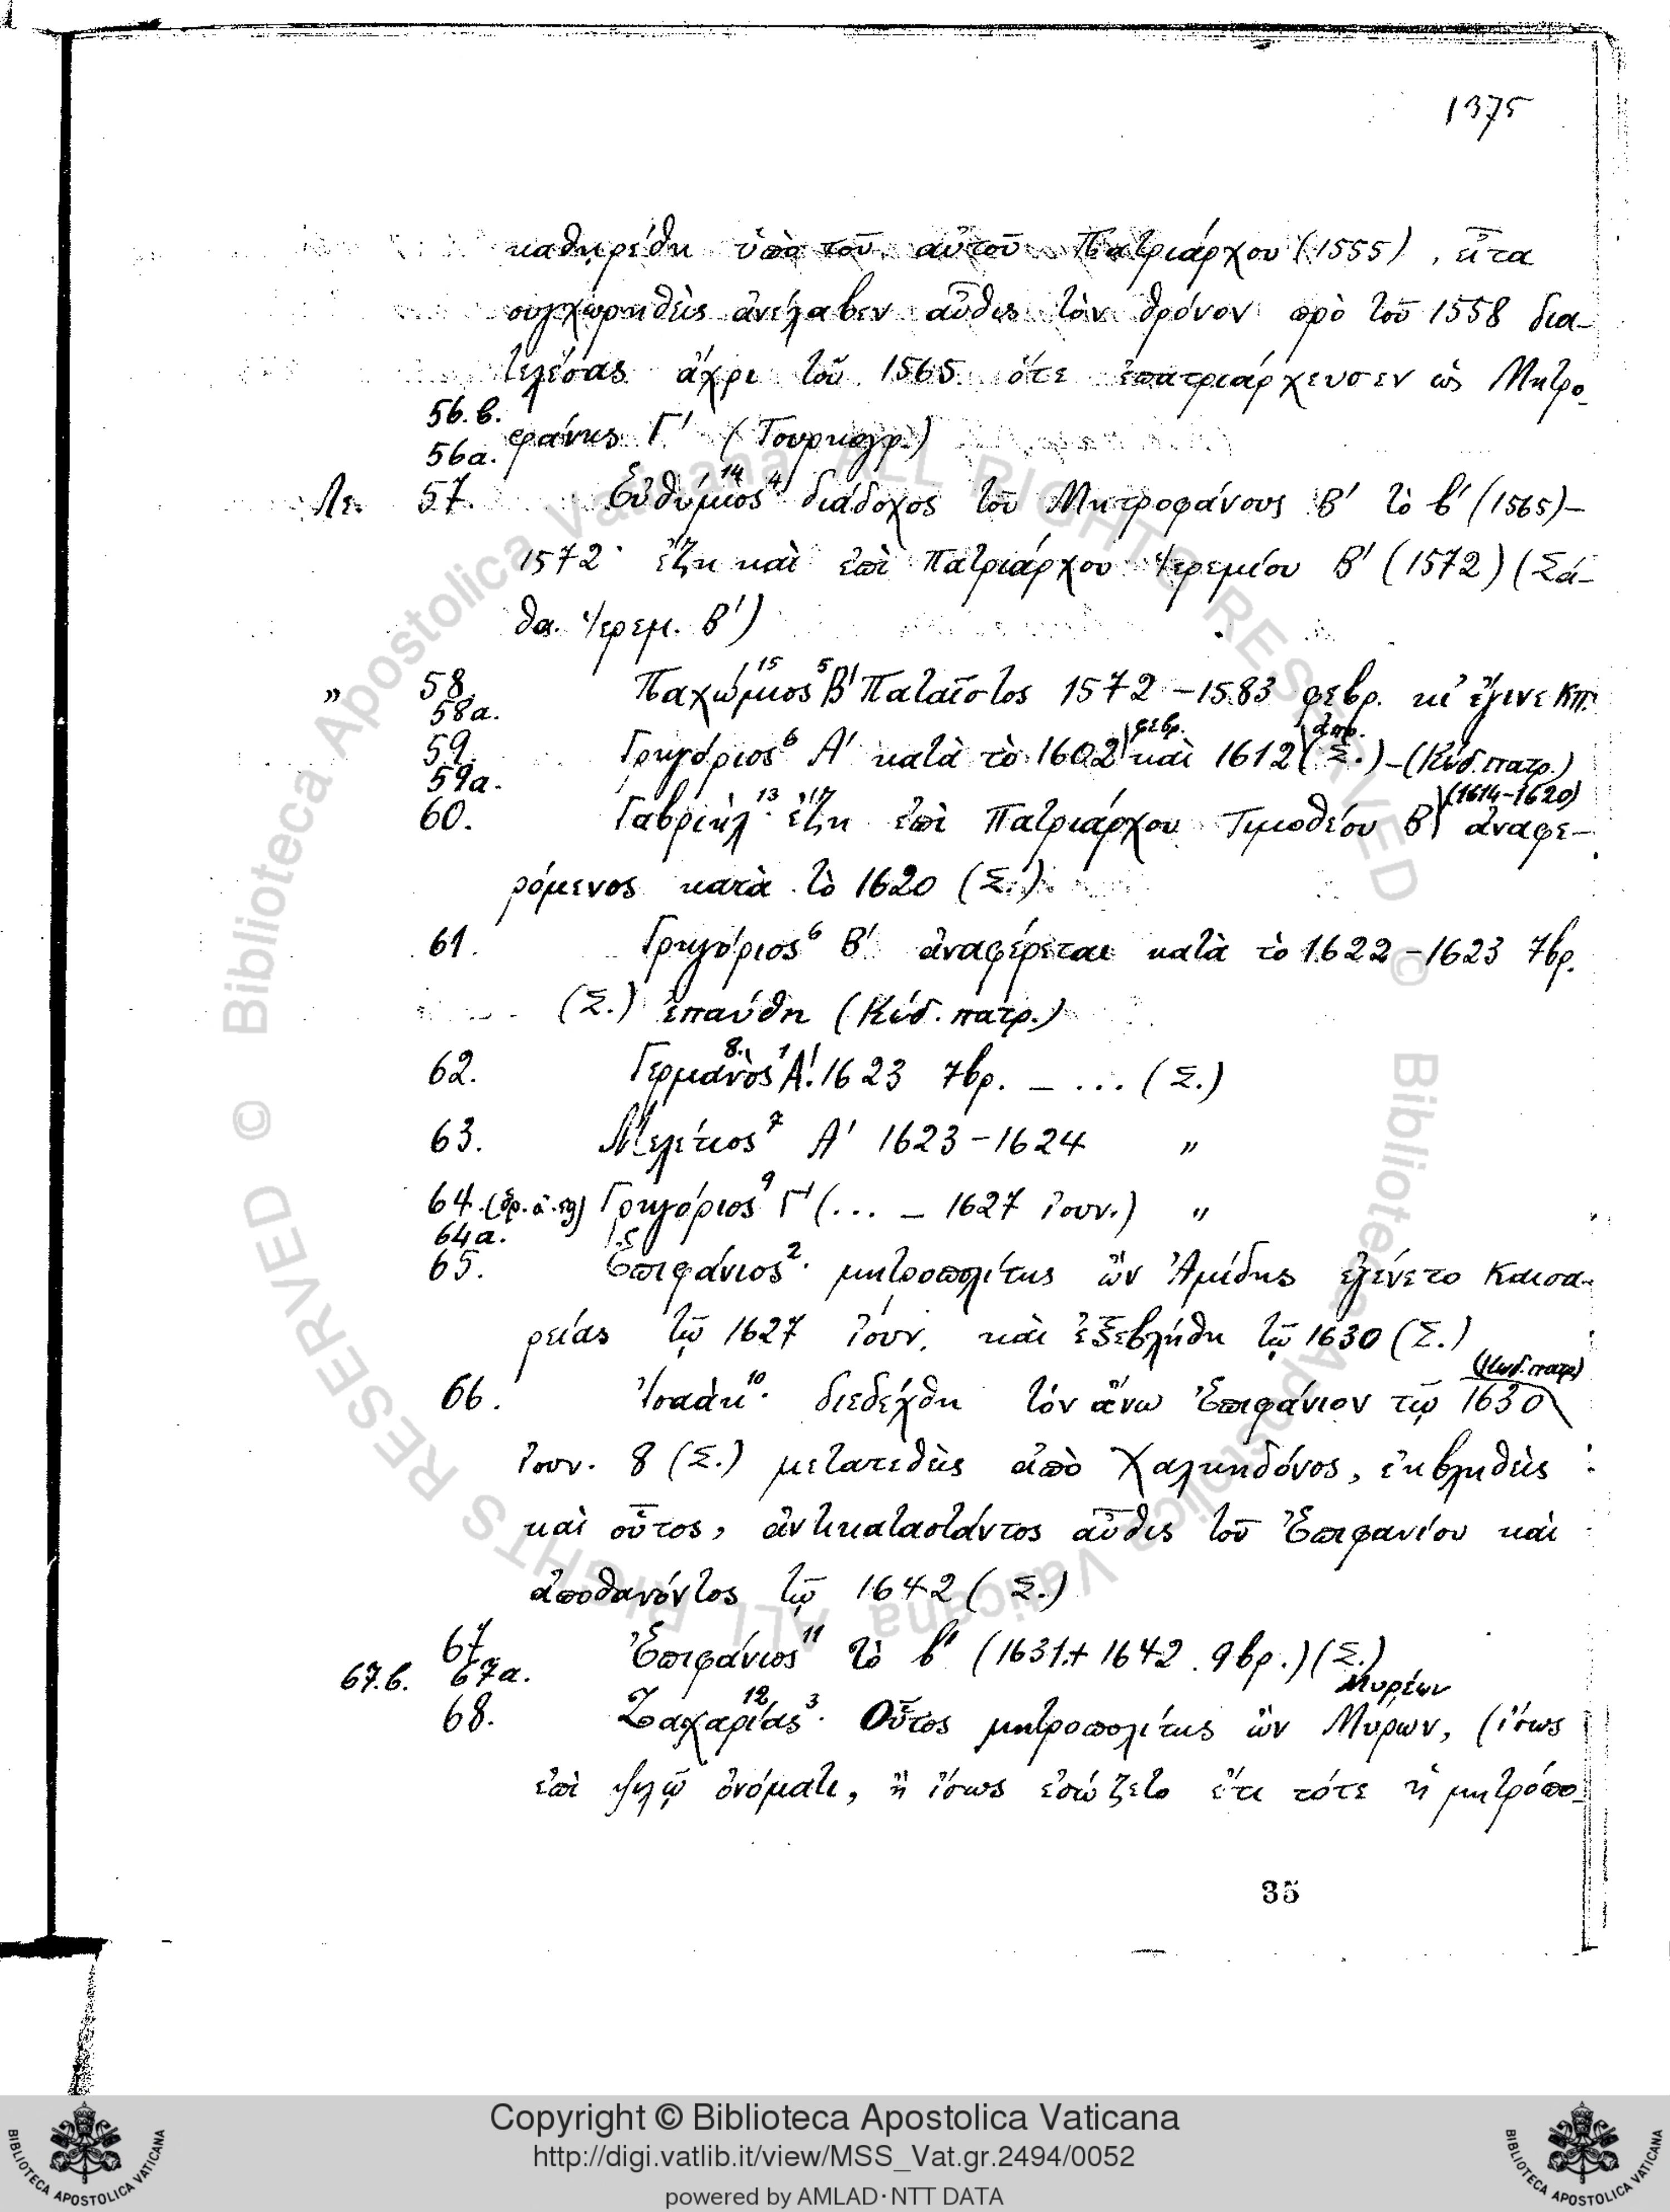 1375
καθῃρέθη ὑπὸ τοῦ αὐτοῦ Πατριάρχου (1555), εἶτα
συγχωρηθεὶς ἀνέλαβεν αὖθις τὸν θρόνον πρὸ τοῦ 1558 δια-
τελέσας ἄχρι τοῦ 1565 ὅτε ἐπατριάρχευσεν ὡς Μητρο-
56.β.
φάνης Γ' (Τουρκογρ.)
56α.
Λε. 57. Εὐθύμιος 14 4 διάδοχος τοῦ Μητροφάνους Β' τὸ β' (1565)-
1572· ἔζη καὶ ἐπὶ Πατριάρχου Ἱερεμίου Β' (1572) (Σά-
θα. Ἱερεμ. Β')
" 58. Παχώμιος 15 5 Β' Πατέστος 1572 - 1583 φεβρ. κ' ἔγινε Κπ.
58α.
59. Γρηγόριος 6 Α' κατὰ τὸ 1602 φεβρ. καὶ 1612 (Σ.) - (Κώδ. πατρ.)
59α.
(1614-1620)
60. Γαβριὴλ 13 · ἔζη ἐπὶ Πατριάρχου Τιμοθέου Β' ἀναφε-
ρόμενος κατὰ τὸ 1620 (Σ.)
61. Γρηγόριος 6 Β' ἀναφέρεται κατὰ τὸ 1622 - 1623 7βρ.
(Σ.) ἐπαύθη (Κώδ. πατρ.)
62. Γερμανὸς 8. 1 Α'. 1623 7βρ. - ... (Σ.)
63. Μελέτιος 7 Α' 1623 - 1624 "
64. Γρηγόριος 9 Γ' (... - 1627 Ἰουν.) "
64α.
65. Ἐπιφάνιος 2 · μητροπολίτης ὢν Ἀμίδης ἐγένετο Καισα-
ρείας τῷ 1627 Ἰουν. καὶ ἐξεβλήθη τῷ 1630 (Σ.)
(Κωδ. πατρ)
66. Ἰσαὰκ 10 · διεδέχθη τόν ἄνω Ἐπιφάνιον τῷ 1630
Ἰουν. 8 (Σ.) μετατεθεὶς ἀπὸ Χαλκηδόνος, ἐκβληθεὶς
καὶ οὗτος, ἀντικαταστάντος αὖθις τοῦ Ἐπιφανίου καὶ
ἀποθανόντος τῷ 1642 (Σ.)
67. Ἐπιφάνιος 11 τὸ β' (1631 + 1642 9βρ.) (Σ.)
67.β. 67α.
Μυρέων
68. Ζαχαρίας 12 3 · Οὗτος μητροπολίτης ὢν Μύρων, (ἴσως
ἐπὶ ψιλῷ ὀνόματι, ἢ ἴσως ἐσώζετο ἔτι τότε ἡ μητρόπο-
35
© Biblioteca Apostolica Vaticana ALL RIGHTS RESERVED © Biblioteca Apostolica Vaticana ALL RIGHTS RESERVED
Copyright © Biblioteca Apostolica Vaticana
http://digi.vatlib.it/view/MSS_Vat.gr.2494/0052
powered by AMLAD·NTT DATA
BIBLIOTECA APOSTOLICA VATICANA
BIBLIOTECA APOSTOLICA VATICANA